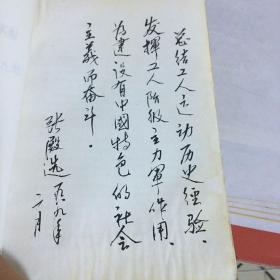 总结工人运动历史经验、
发挥工人阶级主力軍作用、
为建设有中國特色的社会
主義而奋斗。
张殿选 一九八九年
六月